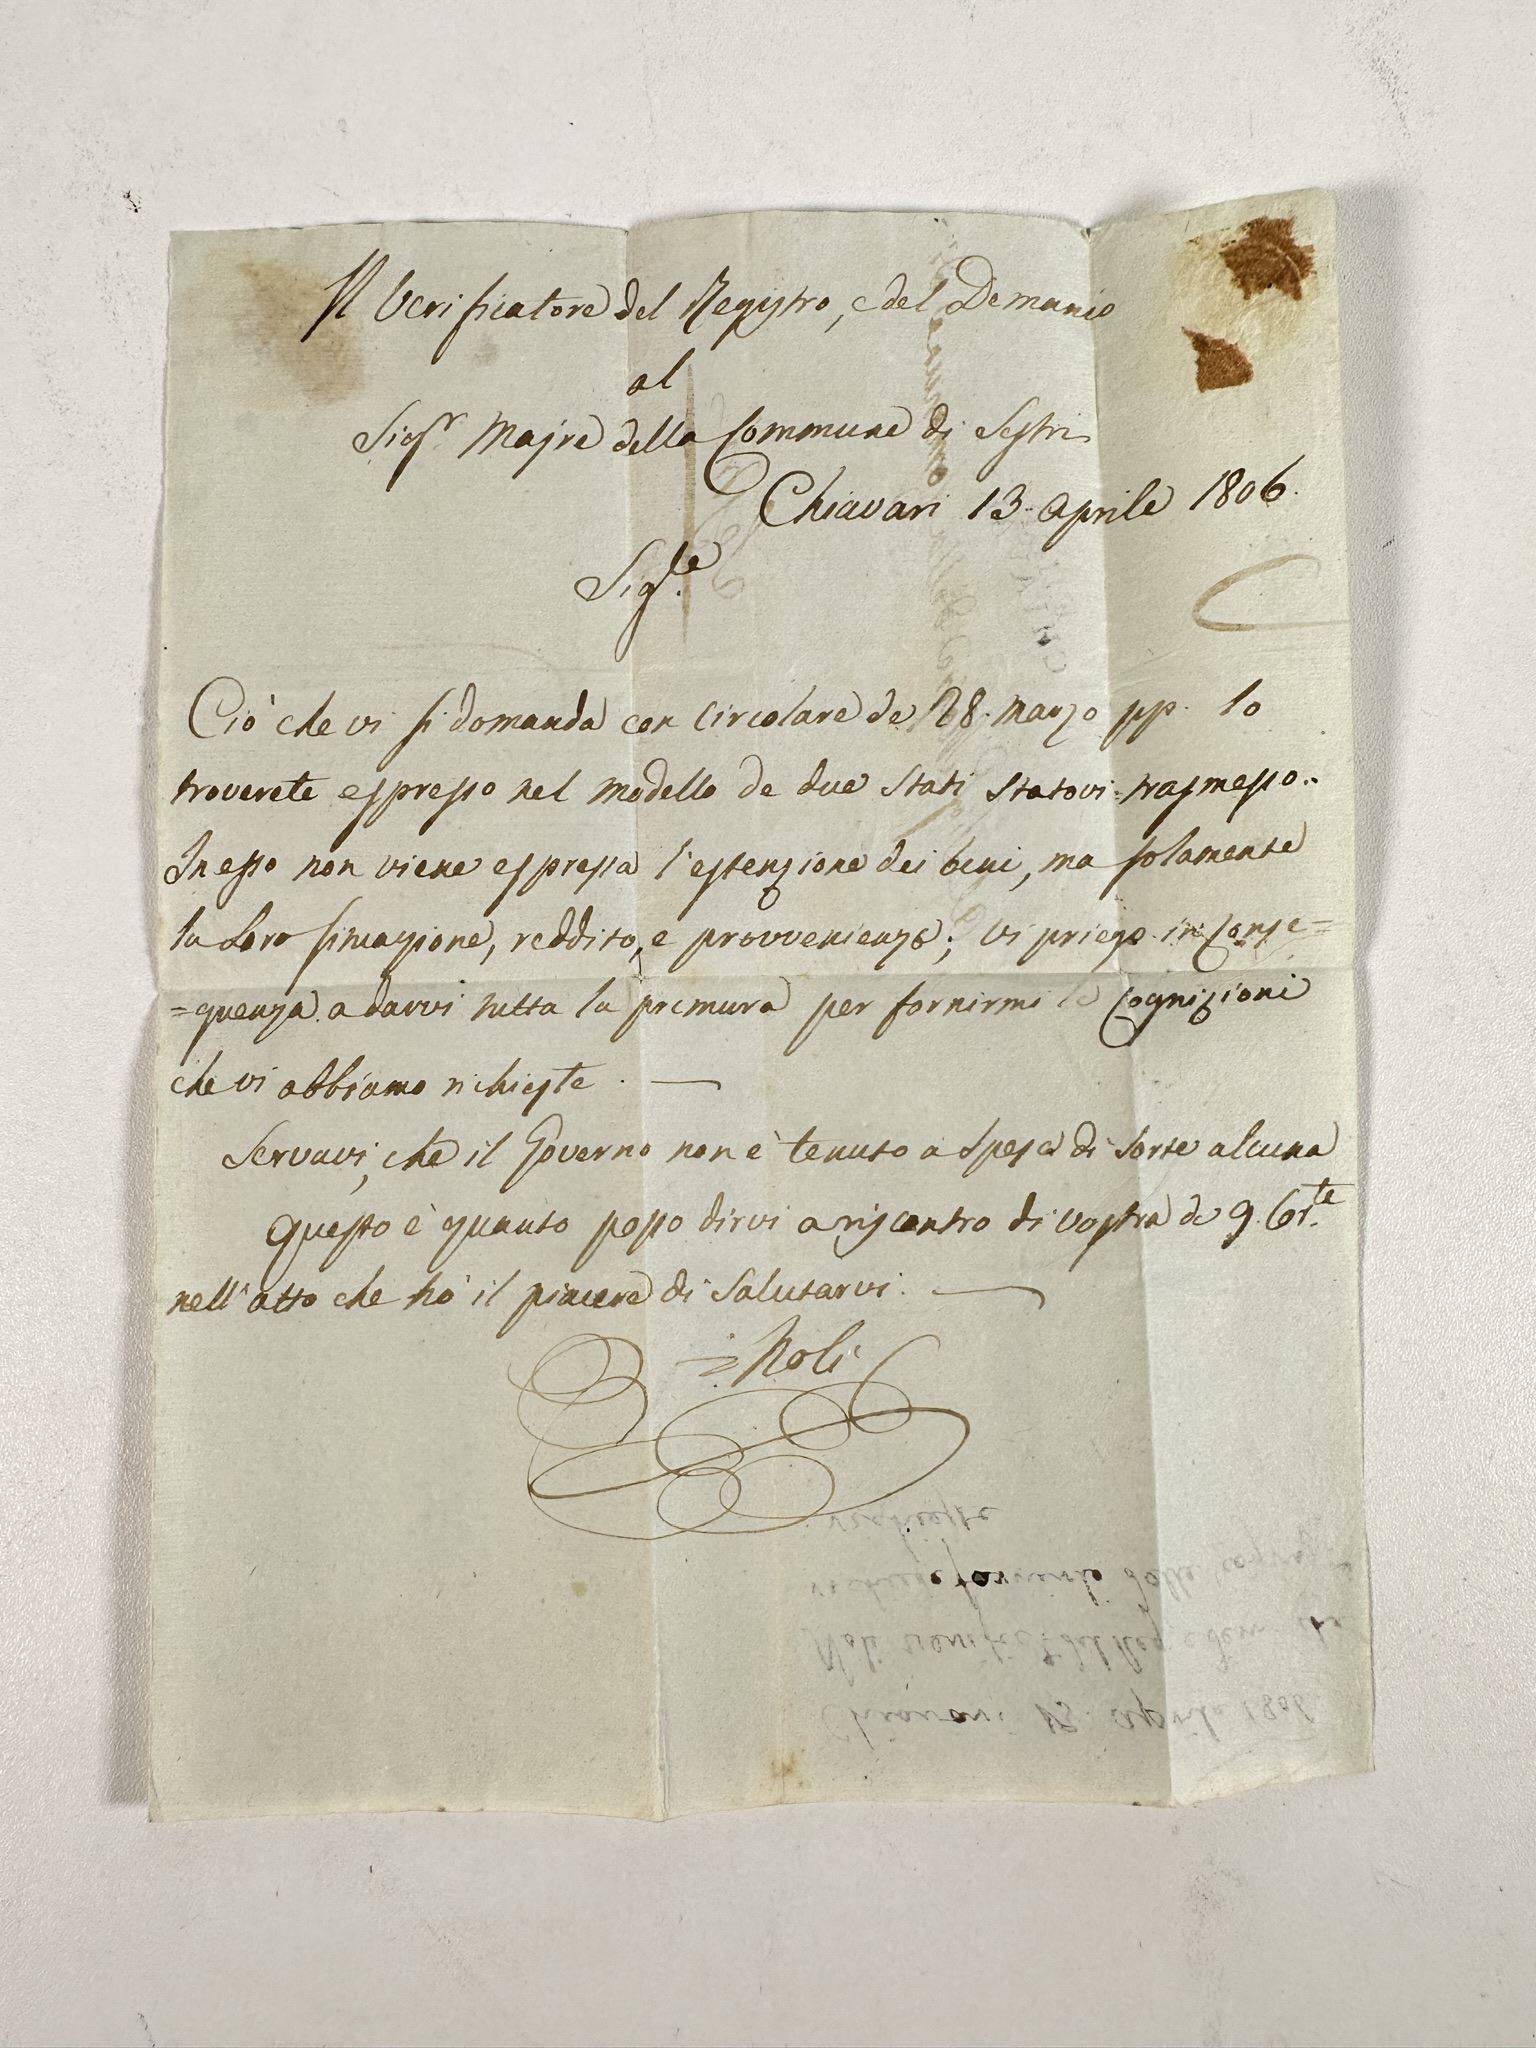 Il Verificatore del Registro, e del Demanio
al
Sigr. Majre della Commune di Sestri
Chiavari 13. Aprile 1806.
Sigle.
Ciò che vi si domanda con Circolare de 28. Marzo pp. lo
troverete espresso nel modello de due Stati Statovi trasmesso..
In esso non viene espressa l'estenzione dei beni, ma solamente
la Loro situazione, reddito, e provvenienza; vi priego in Conse=
=quenza a darvi tutta la premura per fornirmi le Cognizioni
che vi abbiamo richieste. —
Servavi, che il Governo non è tenuto a Spesa di Sorte alcuna
Questo è quanto posso dirvi a riscontro di vostra de 9. Corte.
nell'atto che hò il piacere di Salutarvi. —
= Noli
Chiavari 13. Aprile 1806
Noli del Reg.
fornirlo delle
richieste